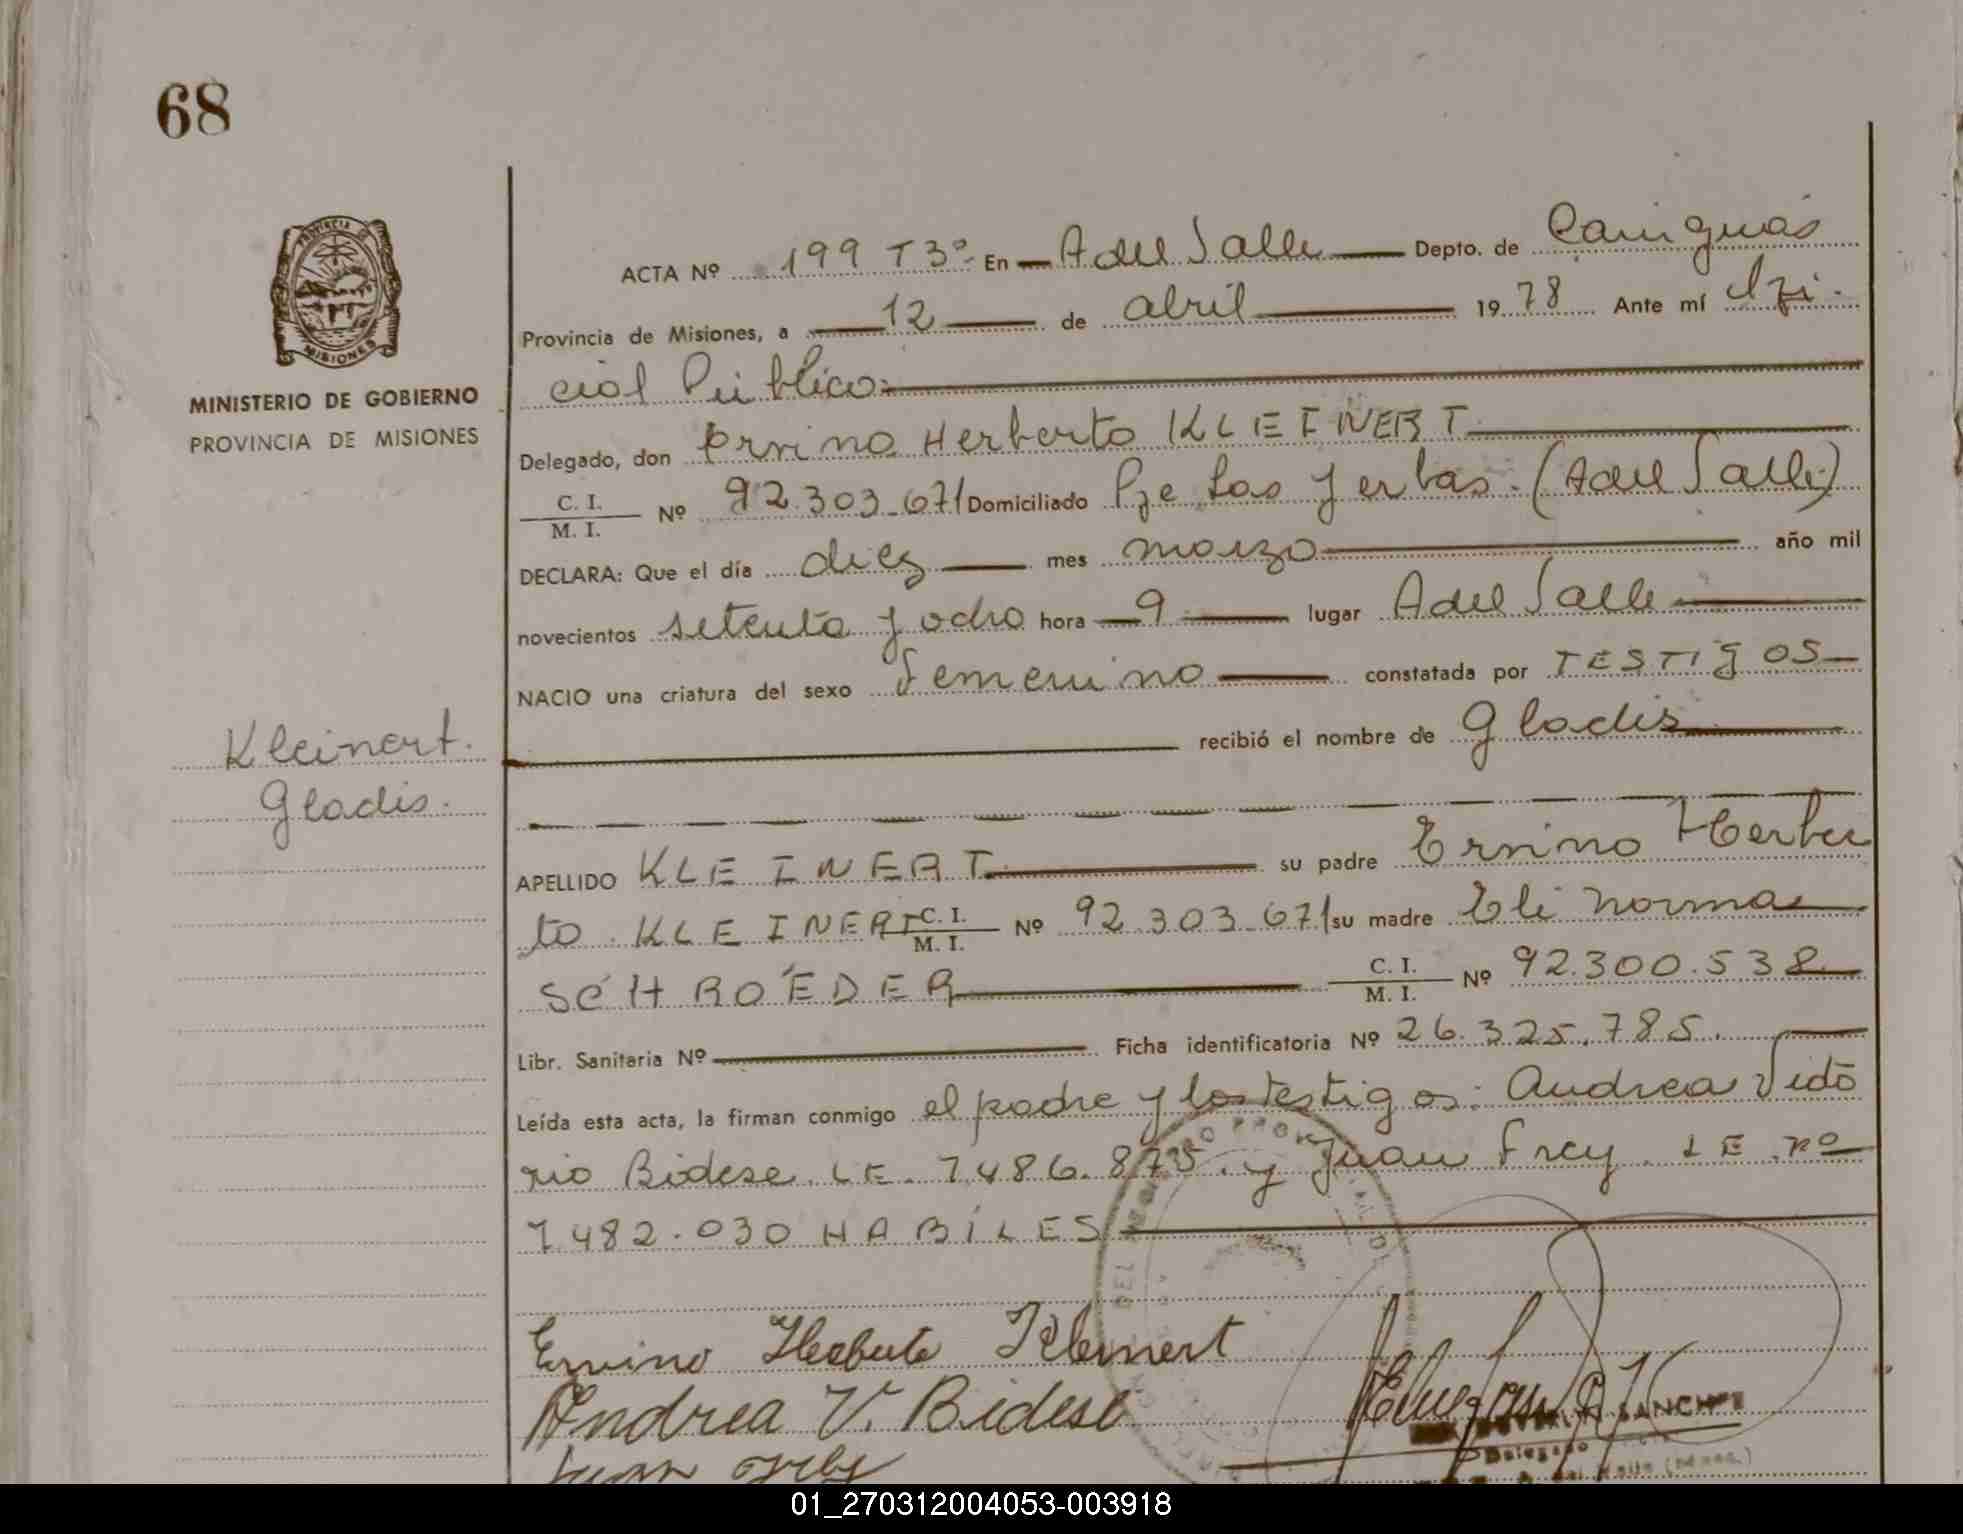 68
PROVINCIA DE
MISIONES
MINISTERIO DE GOBIERNO
PROVINCIA DE MISIONES
ACTA Nº 199 T3º En A del Valle Depto. de Cainguás
Provincia de Misiones, a 12 de abril 1978 Ante mí Ofi.
cial Público:
Delegado, don Ervino Herberto KLEINERT
C. I. / M. I. Nº 92.303.671 Domiciliado Pje Las Yerbas. (A del Valle)
DECLARA: Que el día diez mes marzo año mil
novecientos setenta y ocho hora 9 lugar A del Valle
NACIO una criatura del sexo femenino constatada por TESTIGOS
recibió el nombre de Gladis
Kleinert.
Gladis.
APELLIDO KLEINERT su padre Ervino Herber
to KLEINERT C. I. / M. I. Nº 92.303.671 su madre Eli Norma
SCHROEDER C. I. / M. I. Nº 92.300.538
Libr. Sanitaria Nº Ficha identificatoria Nº 26.325.785.
Leída esta acta, la firman conmigo el padre y los testigos: Andrea Vito
rio Bidese. LE. 7.486.875. y Juan Frey. LE. nº
7.482.030 HABILES
Ervino Herberto Kleinert
Andrea V. Bidese
Juan Frey
SANCHEZ
Delegado
01_270312004053-003918